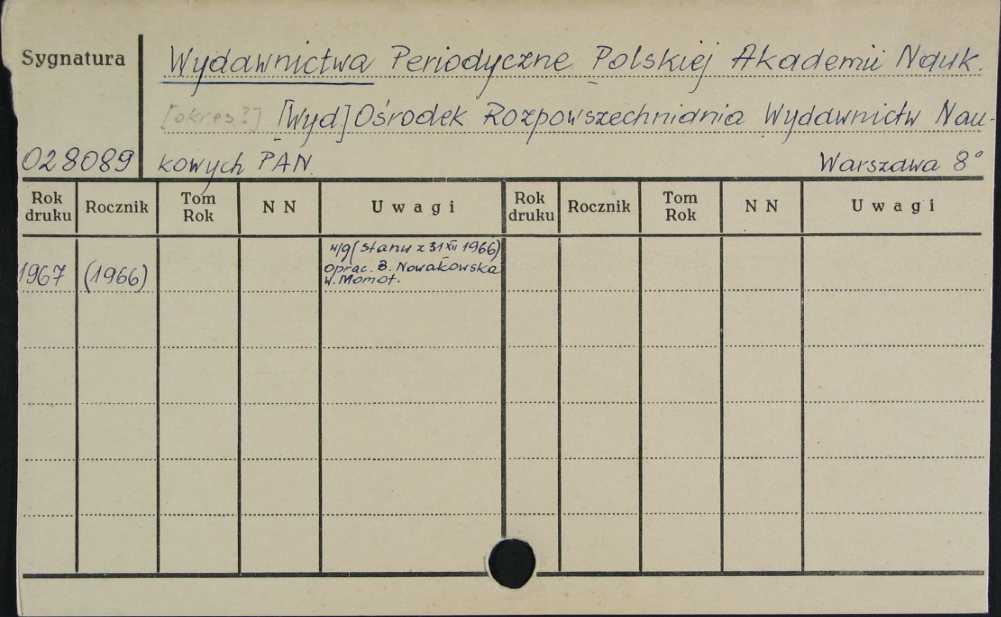 Sygnatura
Wydawnictwa Periodyczne Polskiej Akademii Nauk.
[okres?] [Wyd] Ośrodek Rozpowszechniania Wydawnictw Nau-
028089 kowych PAN. Warszawa 8°
Rok druku Rocznik Tom Rok N N Uwagi Rok druku Rocznik Tom Rok N N Uwagi
1967 (1966) w/g (stanu z 31 XII 1966)
oprac. B. Nowakowska
W. Momot.